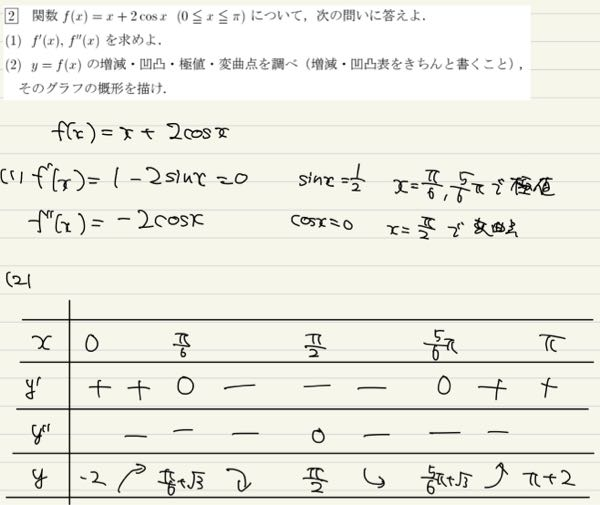 2 関数 f(x) = x + 2 cos x (0 ≦ x ≦ π) について，次の問いに答えよ．
(1) f′(x), f″(x) を求めよ．
(2) y = f(x) の増減・凹凸・極値・変曲点を調べ（増減・凹凸表をきちんと書くこと），
そのグラフの概形を描け．
f(x) = x + 2cosx
(1) f'(x) = 1 - 2sinx = 0 sinx = 1/2 x = π/6, 5/6π で極値
f''(x) = -2cosx cosx = 0 x = π/2 で変曲点
(2)
x 0 π/6 π/2 5/6π π
y' + + 0 − − − 0 + +
y'' − − − 0 − − −
y -2 ⤴ π/6+√3 ⤵ π/2 ↳ 5/6π+√3 ⤴ π+2